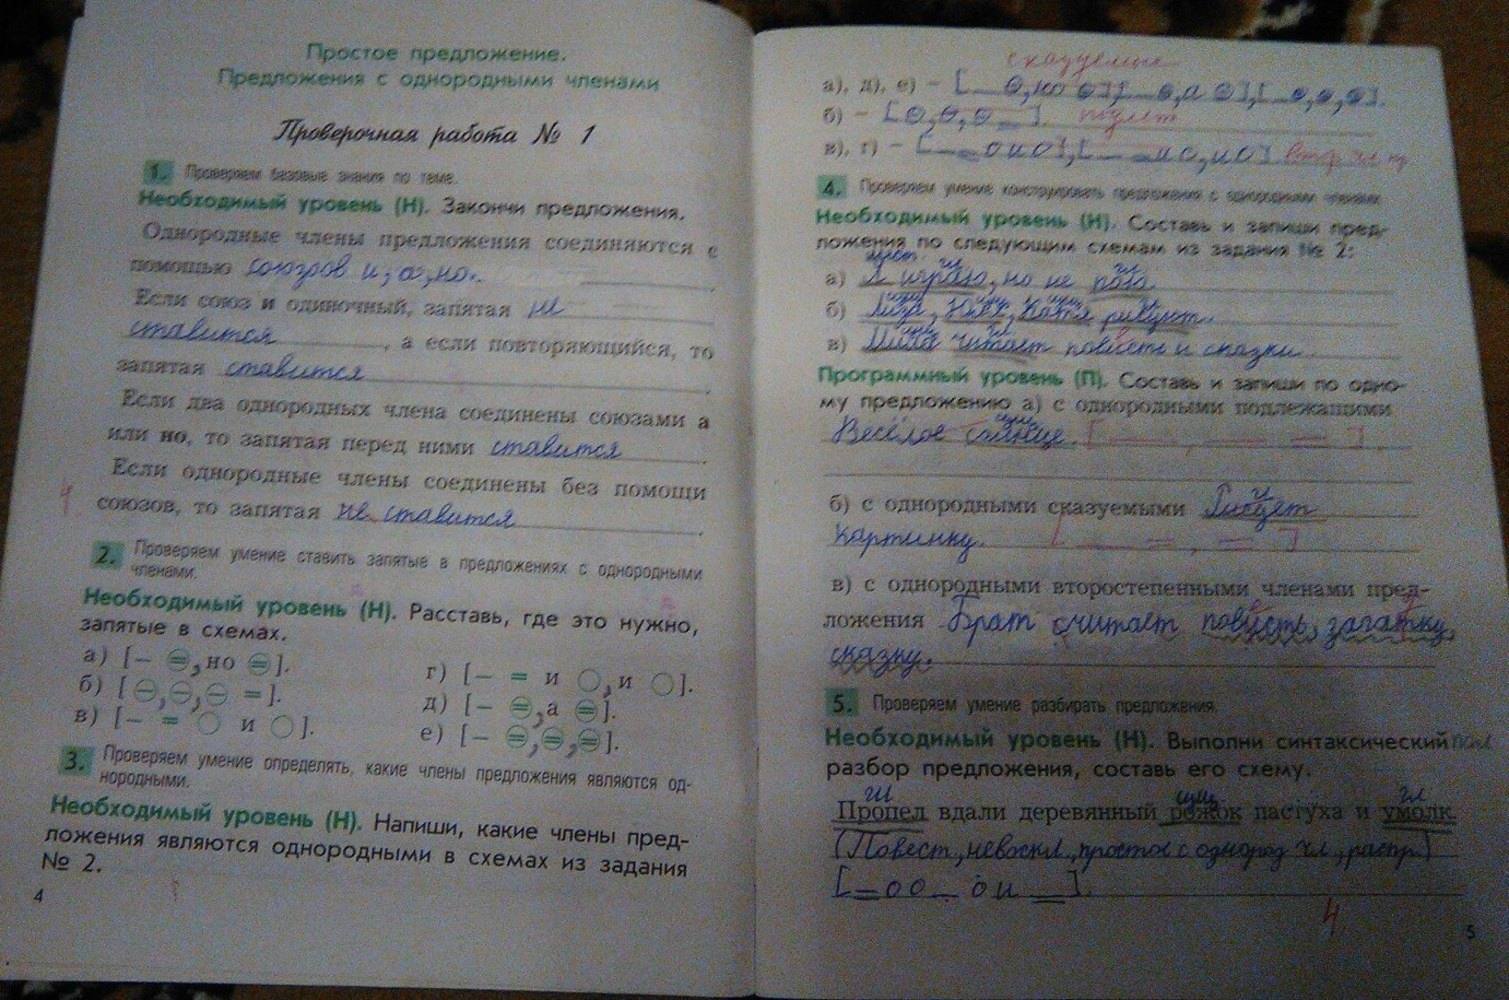 Простое предложение.
Предложения с однородными членами
Проверочная работа № 1
1. Проверяем базовые знания по теме.
Необходимый уровень (Н). Закончи предложения.
Однородные члены предложения соединяются с
помощью союзов и, а, но.
Если союз и одиночный, запятая не
ставится, а если повторяющийся, то
запятая ставится.
Если два однородных члена соединены союзами а
или но, то запятая перед ними ставится.
Если однородные члены соединены без помощи
союзов, то запятая не ставится.
4
2. Проверяем умение ставить запятые в предложениях с однородными
членами.
Необходимый уровень (Н). Расставь, где это нужно,
запятые в схемах.
а) [– ⊜, но ⊜].
б) [⊖, ⊖, ⊖ =].
в) [– = ○ и ○].
г) [– = и ○, и ○].
д) [– ⊜, а ⊜].
е) [– ⊜, ⊜, ⊜].
3. Проверяем умение определять, какие члены предложения являются од-
нородными.
Необходимый уровень (Н). Напиши, какие члены пред-
ложения являются однородными в схемах из задания
№ 2.
4
сказуемые
а), д), е) – [– ⊜, но ⊜], [– ⊜, а ⊜], [– ⊜, ⊜, ⊜].
б) – [⊖, ⊖, ⊖ =].
в), г) – [– = о и о], [– = и о, и о]
4. Проверяем умение конструировать предложения с однородными членами.
Необходимый уровень (Н). Составь и запиши пред-
ложения по следующим схемам из задания № 2:
а) Я играю, но не
б) Катя рисуют.
в) читает повесть и сказки.
Программный уровень (П). Составь и запиши по одно-
му предложению а) с однородными подлежащими
Весёлое солнце. [ — , — = ]
б) с однородными сказуемыми Рисует
картинку. [ — = , = ]
в) с однородными второстепенными членами пред-
ложения Брат считает повесть, загатку,
сказку.
5. Проверяем умение разбирать предложения.
Необходимый уровень (Н). Выполни синтаксический
разбор предложения, составь его схему.
гл сущ гл
Пропел вдали деревянный рожок пастуха и умолк.
(Повест., невоскл., простое с однород чл., распр.)
[= о о – о и =].
4
5